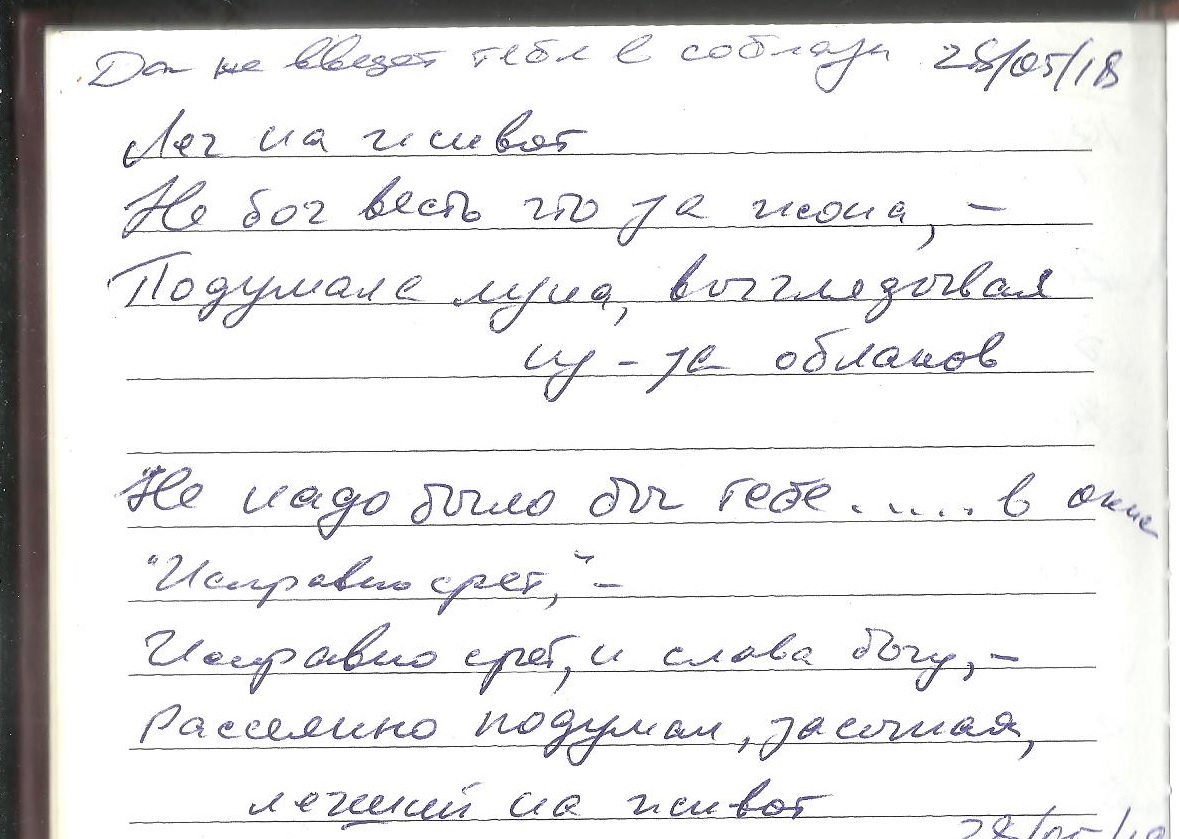 Да не введет тебя в соблазн 28/05/18
Лег на живот
Не бог весть что за жопа, –
Подумала луна, выглядывая
из-за облаков
Не надо было бы тебе ..... в окне
"Исправно срет," –
Исправно срет, и слава богу, –
Рассеянно подумал, засыпая,
легший на живот
28/05/18